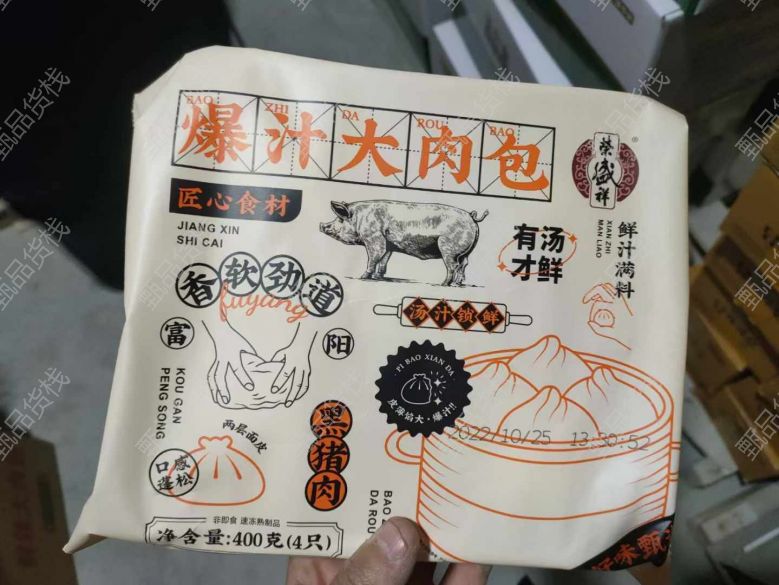 BAO ZHI DA ROU BAO
爆汁大肉包
荣盛祥
®
匠心食材
JIANG XIN
SHI CAI
有汤
才鲜
鲜汁满料
XIAN ZHI
MAN LIAO
香软劲道
fuyang
汤汁锁鲜
富
阳
PI BAO XIAN DA
皮薄馅大·爆汁
KOU GAN
PENG SONG
两层面皮
黑猪肉
口感
蓬松
2022/10/25 13:50:52
BAO
DA ROU
非即食 速冻熟制品
净含量:400克(4只)
好味甄
甄品货栈